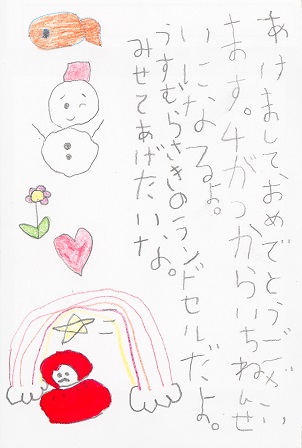 あけまして、おめでとうござい
ます。4がつからいちねんせ
いになるよ。
うすむらさきのランドセルだよ。
みせてあげたいな。